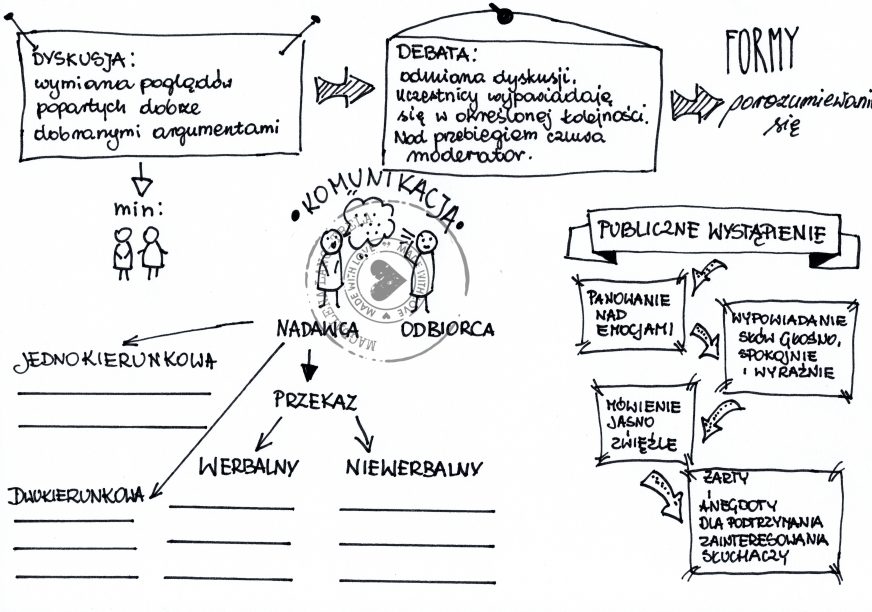 DYSKUSJA:
wymiana poglądów
popartych dobrze
dobranymi argumentami
DEBATA:
odmiana dyskusji.
Uczestnicy wypowiadają
się w określonej kolejności.
Nad przebiegiem czuwa
moderator.
FORMY
porozumiewani
się
min:
•KOMUNIKACJA•
MADE WITH LOVE
MADE WITH LOVE
NADAWCA ODBIORCA
JEDNOKIERUNKOWA
PRZEKAZ
WERBALNY NIEWERBALNY
DWUKIERUNKOWA
PUBLICZNE WYSTĄPIENIE
PANOWANIE
NAD
EMOCJAMI
WYPOWIADANIE
SŁÓW GŁOŚNO,
SPOKOJNIE
I WYRAŹNIE
MÓWIENIE
JASNO
I
ZWIĘŹLE
ŻARTY
I
ANEGDOTY
DLA PODTRZYMANIA
ZAINTERESOWANIA
SŁUCHACZY